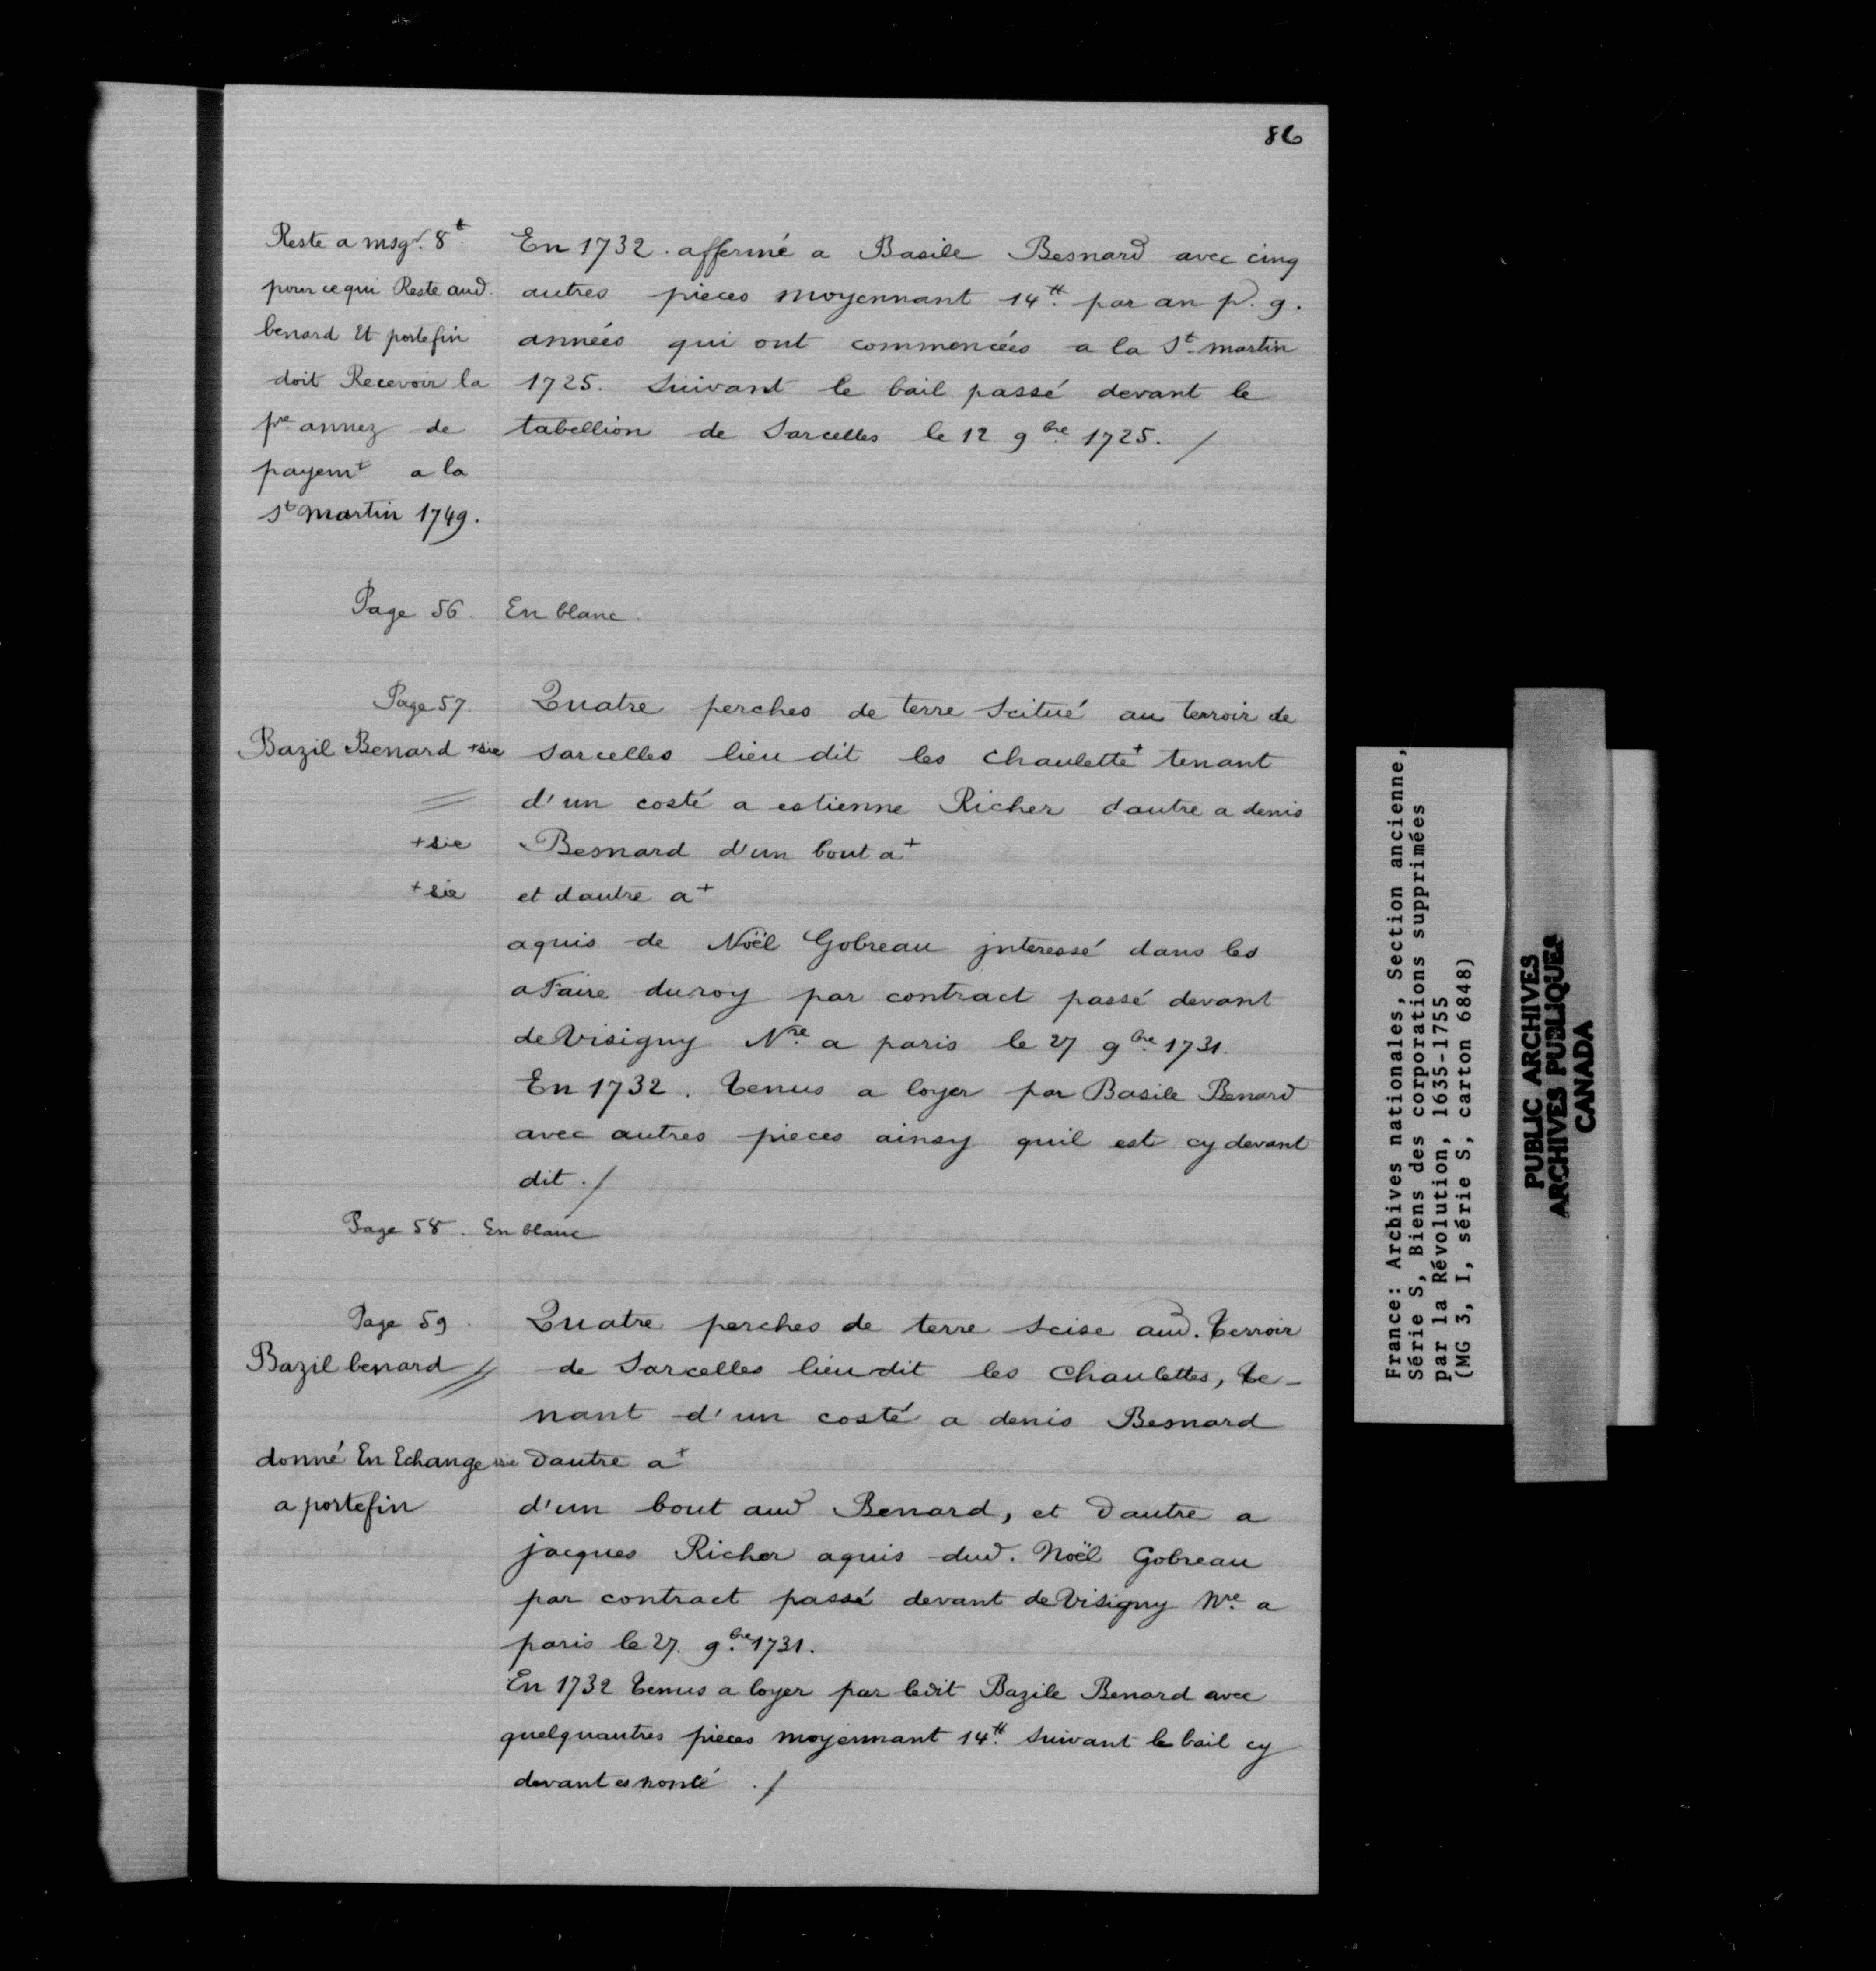 86
Reste a msgr. 8t
pour ce qui Reste aud.
benard Et portefin
doit Recevoir la
pre annez de
payemt a la
St Martin 1749.
En 1732. affermé a Basile Besnard avec cinq
autres pieces moyennant 14tt par an pr. 9.
années qui ont commencées a la St martin
1725. Suivant le bail passé devant le
tabellion de Sarcelles le 12 9bre 1725. /
Page 56. En blanc.
Page 57.
Bazil Benard +sic
+sic
+sic
Quatre perches de terre Scitué au terroir de
Sarcelles lieu dit les Chaulette+ tenant
d'un costé a estienne Richer dautre a denis
Besnard d'un bout a+
et dautre a+
aquis de Noël Gobreau jnteressé dans les
afaire du roy par contract passé devant
de Visigny Nre a paris le 27 9bre 1731.
En 1732. tenus a loyer par Basile Benard
avec autres pieces ainsy quil est cy devant
dit ./
Page 58. En blanc
Page 59.
Bazil benard //
donné En Echange sic
a portefin
Quatre perches de terre Scise aud. terroir
de Sarcelles lieu dit les Chaulettes, te-
nant d'un costé a denis Besnard
Dautre a+
d'un bout aud Benard, et Dautre a
jacques Richer aquis dud. Noël Gobreau
par contract passé devant de Visigny Nre a
paris le 27. 9bre 1731.
En 1732 tenus a loyer par ledit Bazile Benard avec
quelquautres pieces moyennant 14tt suivant le bail cy
devant esnonsé ./
France: Archives nationales, Section ancienne,
Série S, Biens des corporations supprimées
par la Révolution, 1635-1755
(MG 3, I, série S, carton 6848)
PUBLIC ARCHIVES
ARCHIVES PUBLIQUES
CANADA